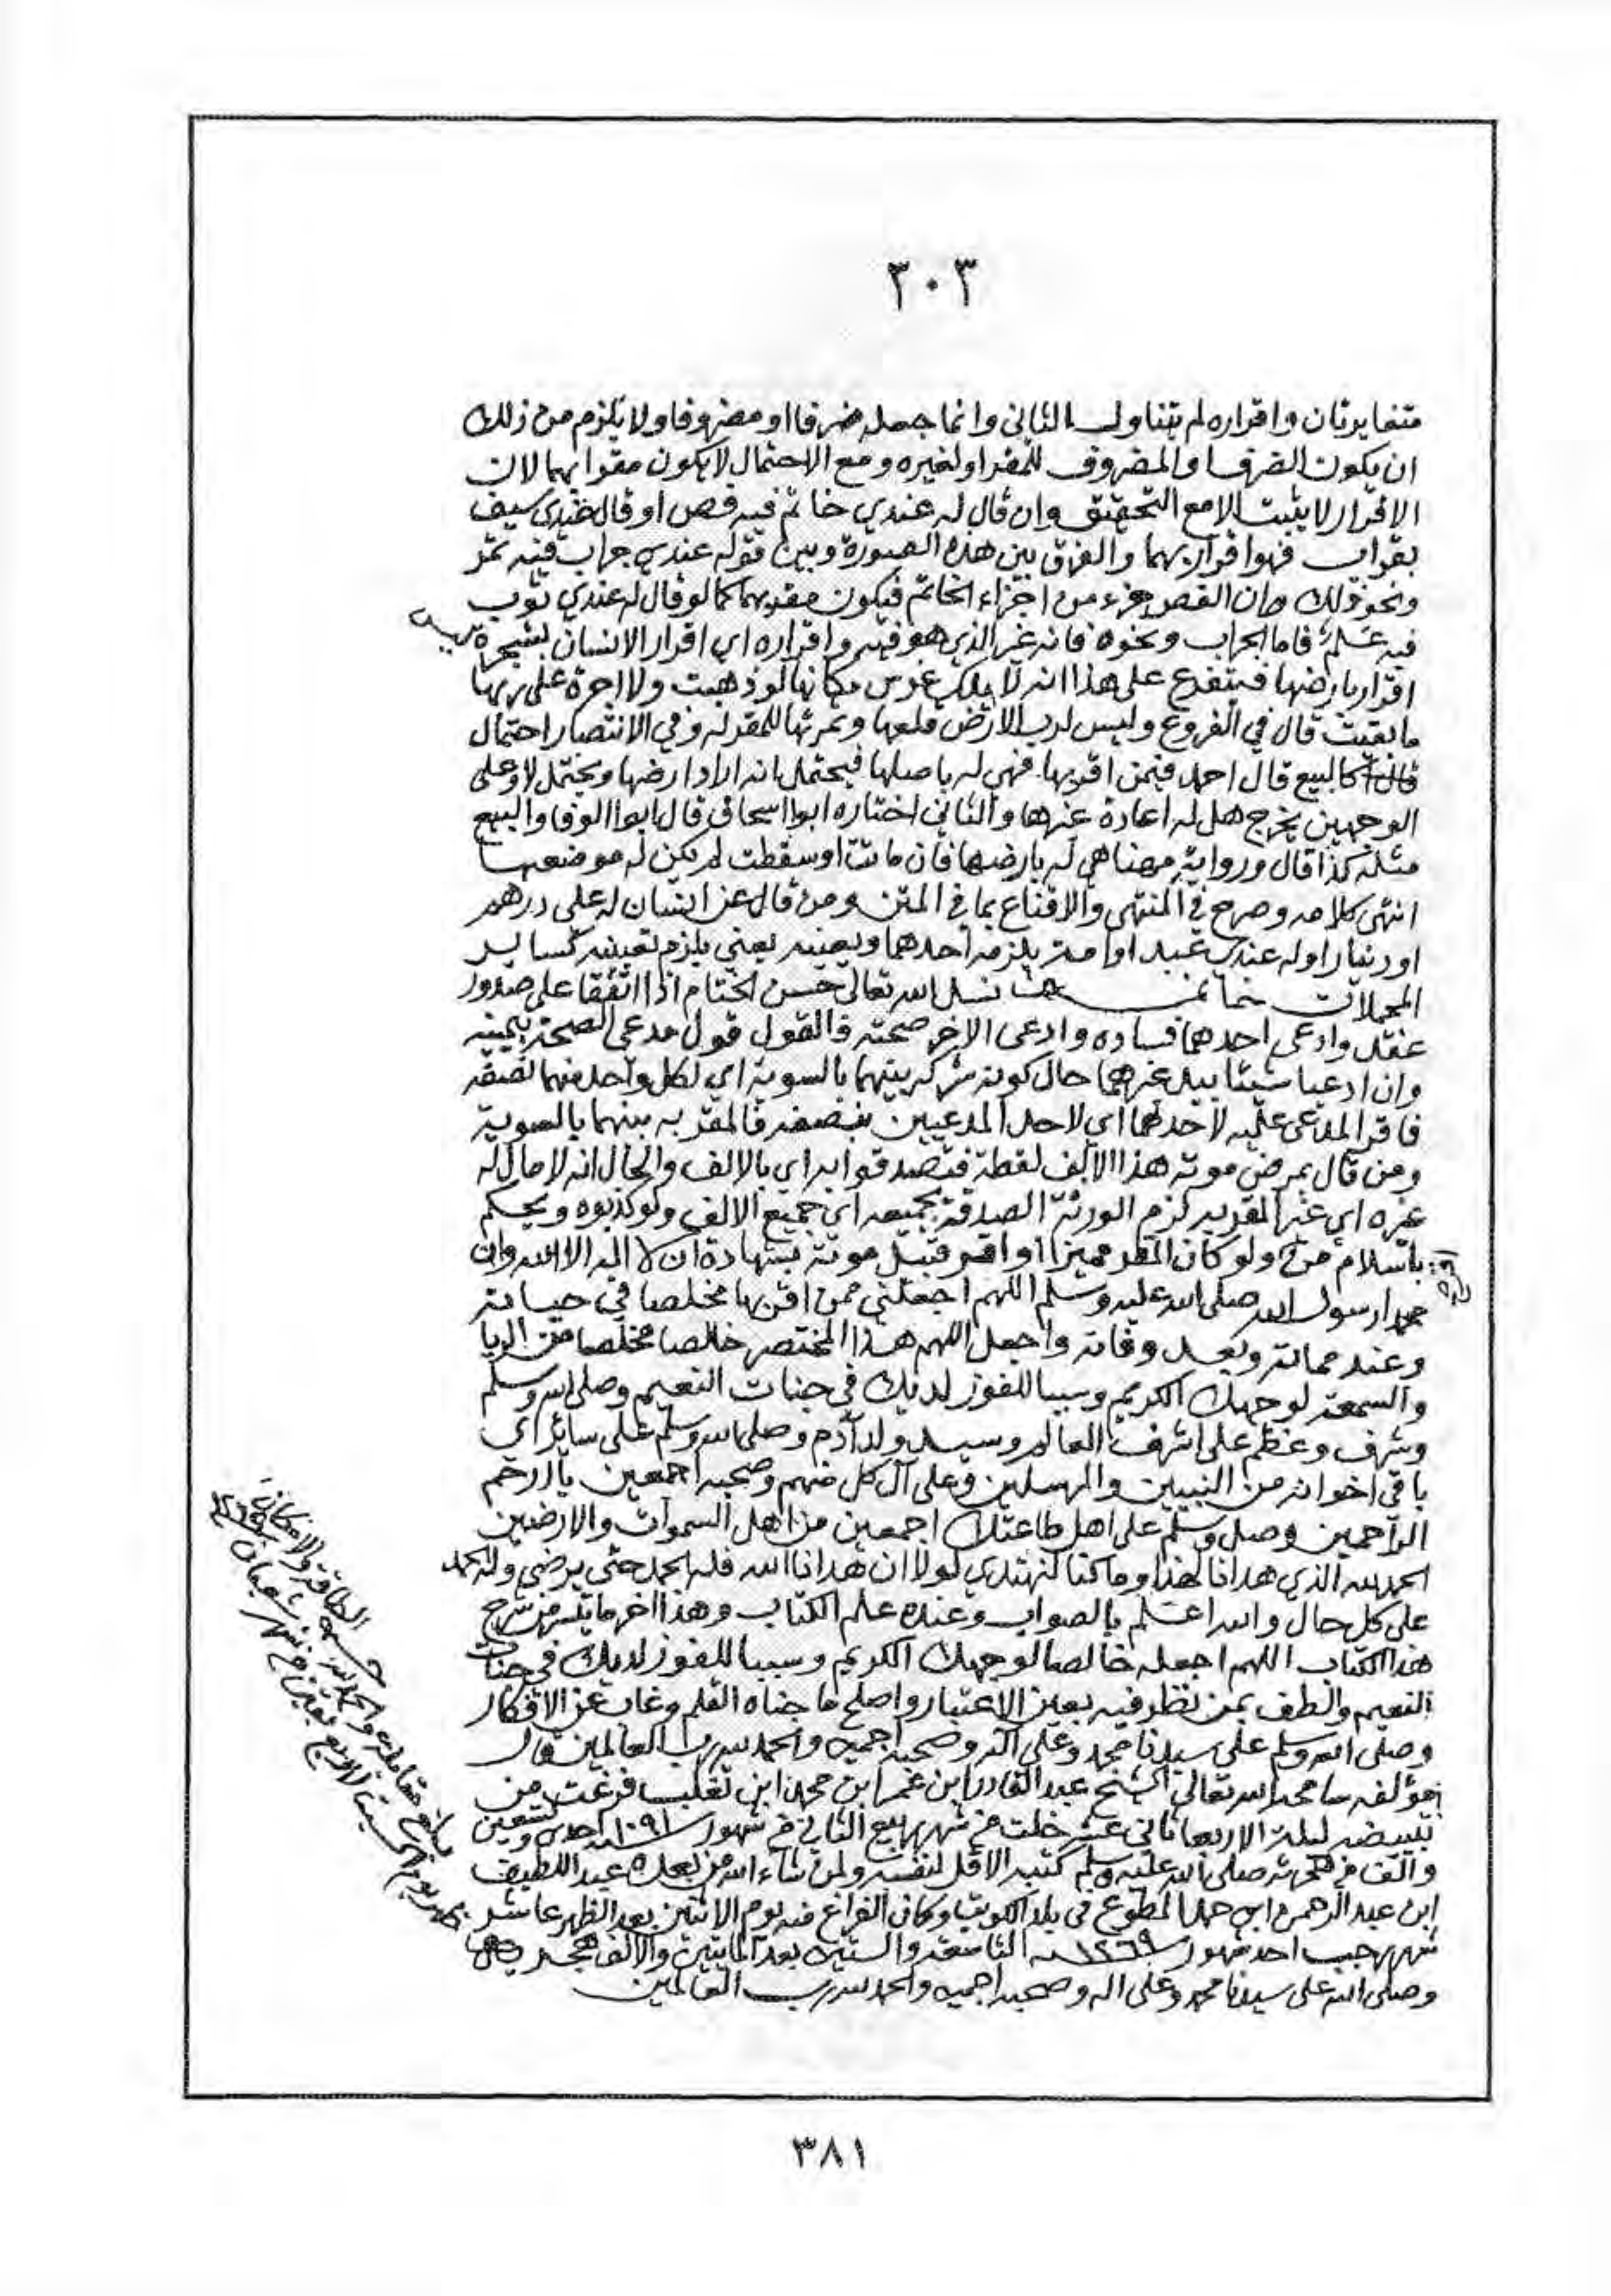 ٣٠٣
متغايرتان واقراره لم يتناول الثاني وانما جعله ضرفا او مضروفا ولا يلزم من ذلك
ان يكون الضرف والمضروف للمقر او لغيره ومع الاحتمال لا يكون مقرا بهما لان
الاقرار لا يثبت الا مع التحقيق وان قال له عندي خاتم فيه فص او قال عندي سيف
بقراب فهو اقرار بهما والفرق بين هذه الصورة وبين قوله عندي جراب فيه تمر
ونحو ذلك ان الفص جزء من اجزاء الخاتم فيكون مقر بهما كما لو قال له عندي ثوب
فيه علم فاما الجراب ونحوه فانه غير الذي هو فيه واقراره اي اقرار الانسان بشجرة ليس
اقرار بارضها فيتفرع على هذا انه لا يملك غرس مكانها لو ذهبت ولا اجرة على ربها
ما بقيت قال في الفروع وليس لرب الارض قلعها وثمرتها للمقر له وفي الانتصار احتمال
كالبيع قال احمد فيمن اقر بها فهي له باصلها فيحتمل انه اراد ارضها ويحتمل لا وعلى
الوجهين يخرج هل له اعادة غيرها والثاني اختاره ابوا اسحاق قال ابوا الوفا والبيع
مثله كذا قال ورواية مهنا هي له بارضها فان ماتت او سقطت لم يكن له موضعها
انتهى كلامه وصرح في المنتهى والاقناع بما في المتن ومن قال عن انسان له علي درهم
او دينار او له عندي عبد او امة يلزمه احدهما ويعينه يعني يلزم تعيينه كسائر
المجملات خاتمــة نسل الله تعالى حسن الختام اذا اتفقا على صدور
عقد وادعى احدهما فساده وادعى الاخر صحته فالقول قول مدعى الصحة بيمينه
وان ادعيا شيئا بيد غيرهما حال كونه شركه بينهما بالسوية اي لكل واحد منهما نصفه
فاقر المدعى عليه لاحدهما اي لاحد المدعيين بنصفه فالمقر به بينهما بالسوية
ومن قال بمرض موته هذا الالف لقطة فتصدقوا به اي بالالف والحال انه لا مال له
غيره اي غير المقر به لزم الورثة الصدقة بجميعه اي جميع الالف ولو كذبوه ويحكم
باسلام من ولو كان المقر مميزا او اقر قبيل موته بشهادة ان لا اله الا الله وان
محمدا رسول الله صلى الله عليه وسلم اللهم اجعلني ممن اقر بها مخلصا في حياته
وعند مماته وبعد وفاته واجعل اللهم هذا المختصر خالصا مخلصا من الريا
والسمعة لوجهك الكريم وسببا للفوز لديك في جنات النعيم وصلى الله وسلم
وشرف وعظم على اشرف العالم وسيد ولد آدم وصلى الله وسلم على سائر اي
باقي اخوانه من النبيين والمرسلين وعلى آل كل منهم وصحبه اجمعين يا ارحم
الراحمين وصل وسلم على اهل طاعتك اجمعين من اهل السموات والارضين
الحمد لله الذي هدانا لهذا وما كنا لنهتدي لولا ان هدانا الله فله الحمد حتى يرضى وله الحمد
على كل حال والله اعلم بالصواب وعنده علم الكتاب وهذا اخر ما تيسر من شرح
هذا الكتاب اللهم اجعله خالصا لوجهك الكريم وسببا للفوز لديك في جنات
النعيم والطف بمن نظر فيه بعين الاعتبار واصلح ما جناه القلم وغاب عن الافكار
وصلى الله وسلم على سيدنا محمد وعلى آله وصحبه اجمعين والحمد لله رب العالمين قال
مؤلفه سامحه الله تعالى الشيخ عبد القادر ابن عمر ابن محمد ابن تغلب فرغت من
تبييضه ليلة الاربعا ثاني عشر خلت من شهر ربيع الثاني من شهور سنة ١٠٩١ احدى وتسعين
والف من هجرته صلى الله عليه وسلم كتبه الاقل لنفسه ولمن شاء الله من بعده عبد اللطيف
ابن عبد الرحمن ابن حمد المطوع في بلد الكويت وكان الفراغ منه يوم الاثنين بعد الظهر عاشر
شهر رجب احد شهور سنة ١٢٦٩ التاسعة والستين بعد المايتين والالف هجرية
وصلى الله على سيدنا محمد وعلى اله وصحبه اجمعين والحمد لله رب العالمين
بلغ مقابلة والحمد لله حسب الطاقة والامكان
٣٨١